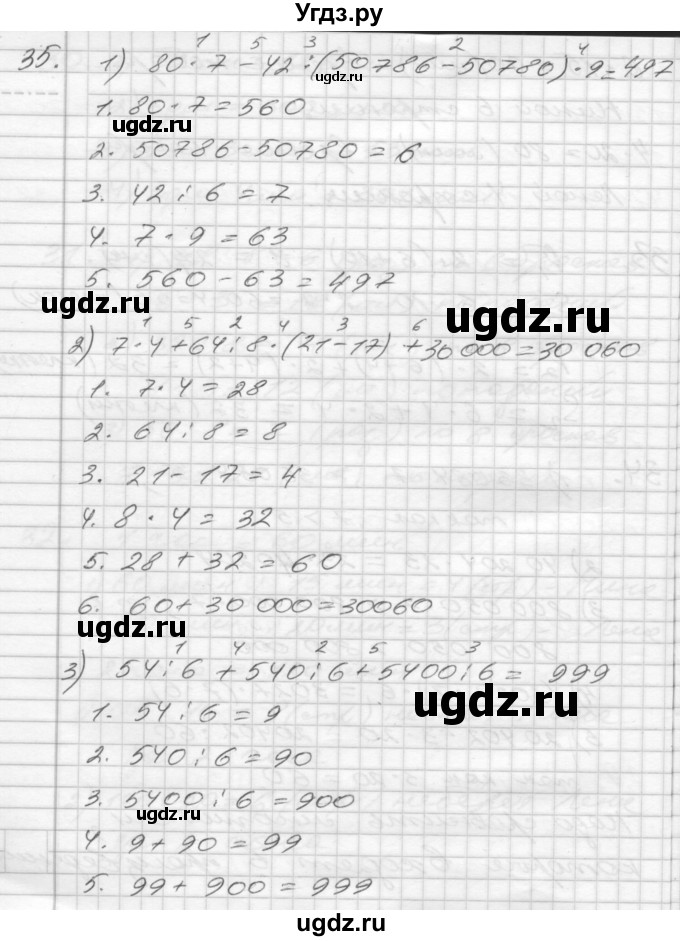 Угдз.ру
1 5 3 2 4
35. 1) 80 · 7 - 42 : (50786 - 50780) · 9 = 497
1. 80 · 7 = 560
ugdz.ru
2. 50786 - 50780 = 6
3. 42 : 6 = 7
4. 7 · 9 = 63
5. 560 - 63 = 497
ugdz.ru
ugdz.ru
1 5 2 4 3 6
2) 7 · 4 + 64 : 8 · (21 - 17) + 30 000 = 30 060
1. 7 · 4 = 28
2. 64 : 8 = 8
3. 21 - 17 = 4
4. 8 · 4 = 32
5. 28 + 32 = 60
6. 60 + 30 000 = 30060
ugdz.ru
1 4 2 5 3
3) 54 : 6 + 540 : 6 + 5400 : 6 = 999
ugdz.ru
1. 54 : 6 = 9
2. 540 : 6 = 90
3. 5400 : 6 = 900
ugdz.ru
4. 9 + 90 = 99
5. 99 + 900 = 999
ugdz.ru